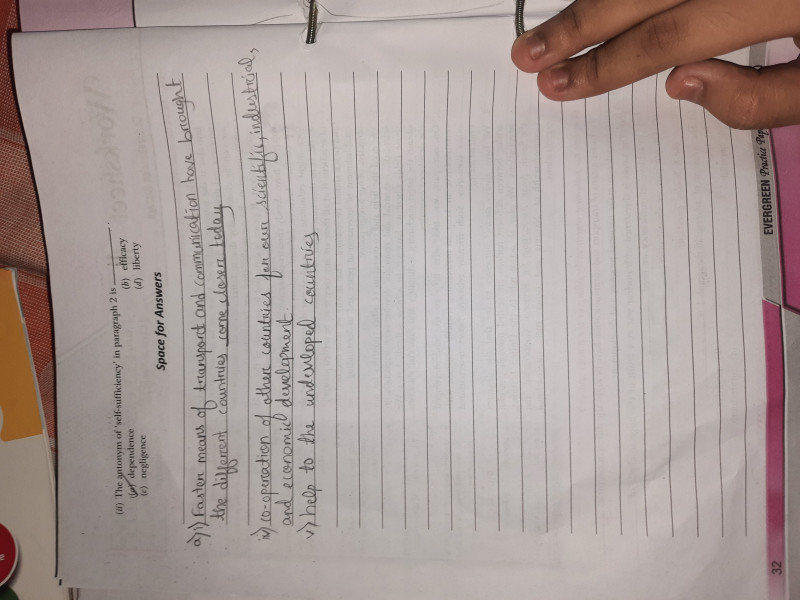 (ii) The antonym of 'self-sufficiency' in paragraph 2 is ________.
(a) dependence (b) efficacy
(c) negligence (d) liberty
Space for Answers
a) i) Faster means of transport and communication have brought
the different countries come closer today
iv) co-operation of other countries for our scientific, industrial,
and economic development.
v) help to the undeveloped countries
32
EVERGREEN Practice